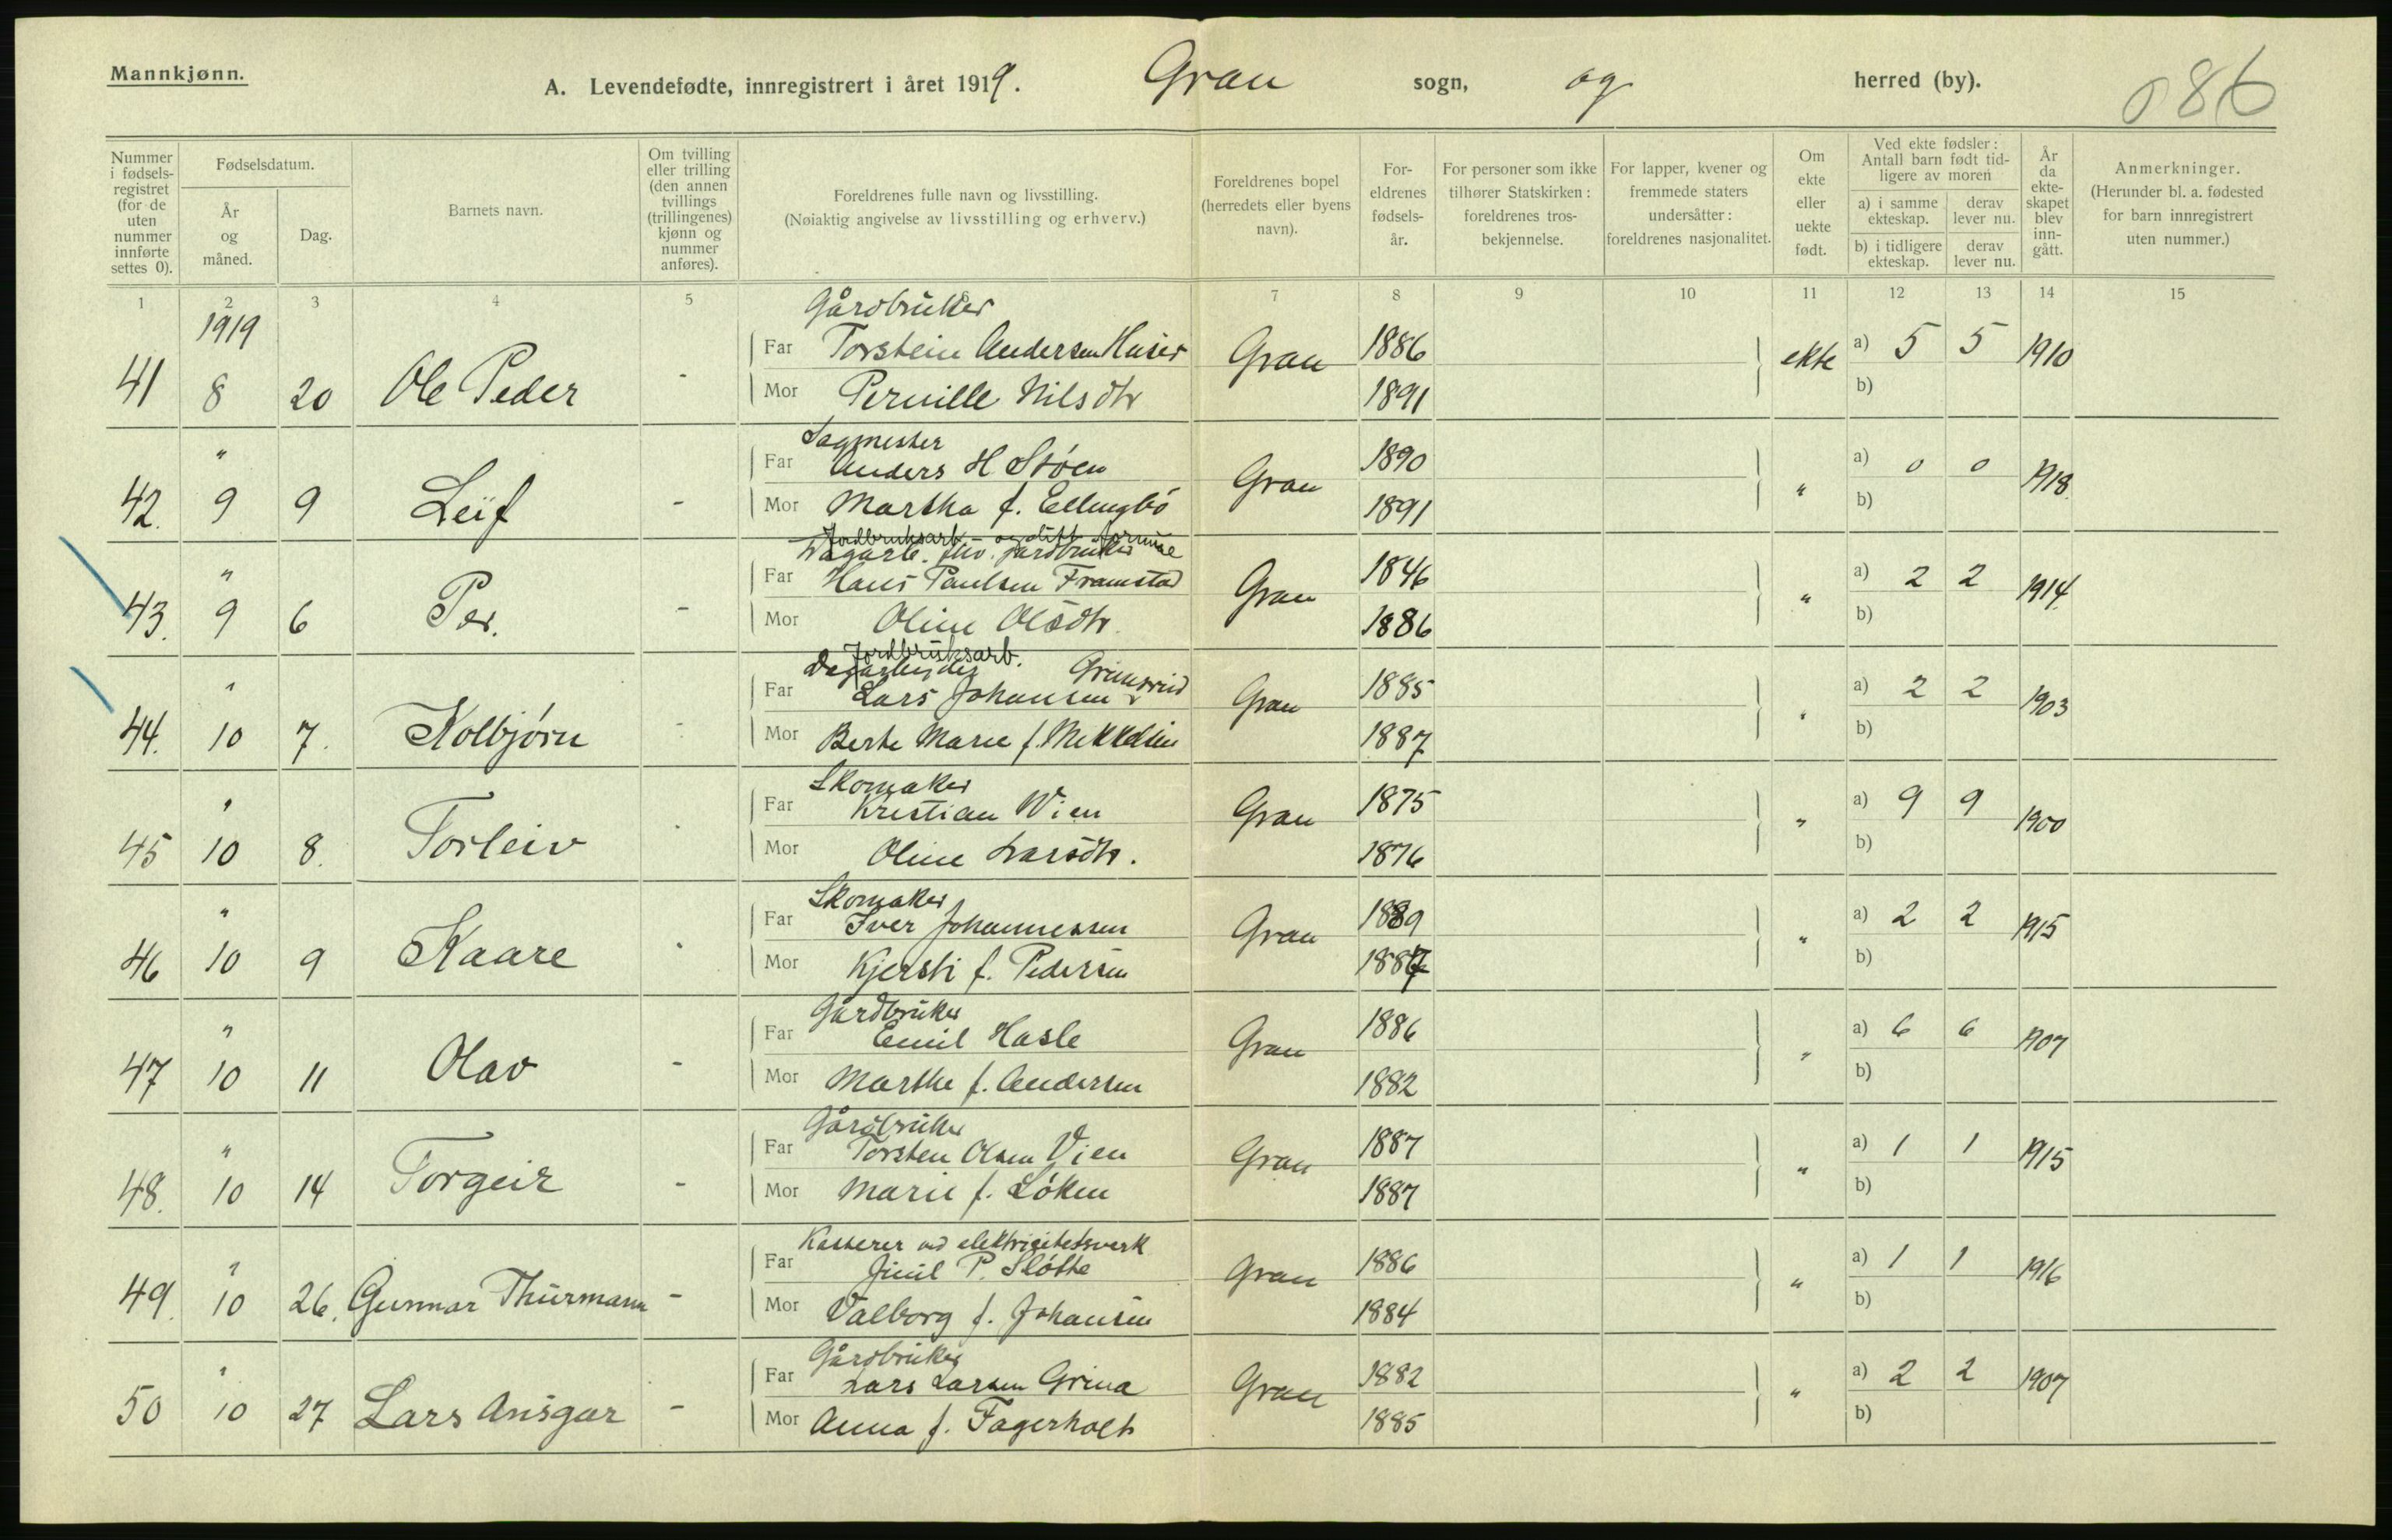 Mannkjønn.
A. Levendefødte, innregistrert i året 1919. Gran sogn, og herred (by). 086
Nummer i fødselsregistret (for de uten nummer innførte settes 0).
Fødselsdatum.
År og måned.
Dag.
Barnets navn.
Om tvilling eller trilling (den annen tvillings (trillingenes) kjønn og nummer anføres).
Foreldrenes fulle navn og livsstilling.
(Nøiaktig angivelse av livsstilling og erhverv.)
Foreldrenes bopel (herredets eller byens navn).
Foreldrenes fødselsår.
For personer som ikke tilhører Statskirken: foreldrenes trosbekjennelse.
For lapper, kvener og fremmede staters undersåtter: foreldrenes nasjonalitet.
Om ekte eller uekte født.
Ved ekte fødsler: Antall barn født tidligere av moren
a) i samme ekteskap. derav lever nu.
b) i tidligere ekteskap. derav lever nu.
År da ekteskapet blev inngått.
Anmerkninger.
(Herunder bl. a. fødested for barn innregistrert uten nummer.)
1 2 3 4 5 6 7 8 9 10 11 12 13 14 15
1919
Gårdbruker
Far Torstein Andersen Huser 1886 a) 5 5
41 8 20 Ole Peder - Gran ekte 1910
Mor Pernille Nilsdtr 1891 b)
Sagmester
" Far Anders H Støen 1890 a) 0 0
42. 9 9 Leif - Gran " 1918
Mor Martha f. Ellingbø 1891 b)
Jordbruksarb. og
Dagarb. gårdbruker
" Far Hans Paulsen Framstad 1846 a) 2 2
43. 9 6 Per. - Gran " 1914
Mor Oline Olsdtr. 1886 b)
Jordbruksarb.
Dagarbejder
" Far Lars Johansen Grinsrud 1885 a) 2 2
44. 10 7. Kolbjørn - Gran " 1903
Mor Berte Marie f. Mikkelsen 1887 b)
Skomaker
" Far Kristian Wien 1875 a) 9 9
45 10 8. Torleiv - Gran " 1900
Mor Oline Larsdtr. 1876 b)
Skomaker
" Far Iver Johannessen 1889 a) 2 2
46 10 9 Kaare - Gran " 1915
Mor Kjersti f. Pedersen 1887 b)
Gårdbruker
" Far Emil Hasle 1886 a) 6 6
47 10 11 Olav - Gran " 1907
Mor Marthe f. Andersen 1882 b)
Gårdbruker
" Far Torsten Olsen Vien 1887 a) 1 1
48. 10 14 Torgeir - Gran " 1915
Mor Marie f. Løken 1887 b)
Kasserer ved elektricitetsverk
" Far P. Sløtte 1886 a) 1 1
49. 10 26. Gunnar Thurmann - Gran " 1916
Mor Valborg f. Johansen 1884 b)
Gårdbruker
" Far Lars Larsen Grina 1882 a) 2 2
50 10 27 Lars Ansgar - Gran " 1907
Mor Anna f. Fagerholt 1885 b)